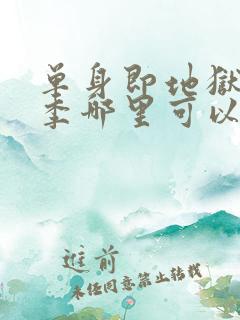 单身即地獄
季哪里可以
进前
未经同意禁止转载